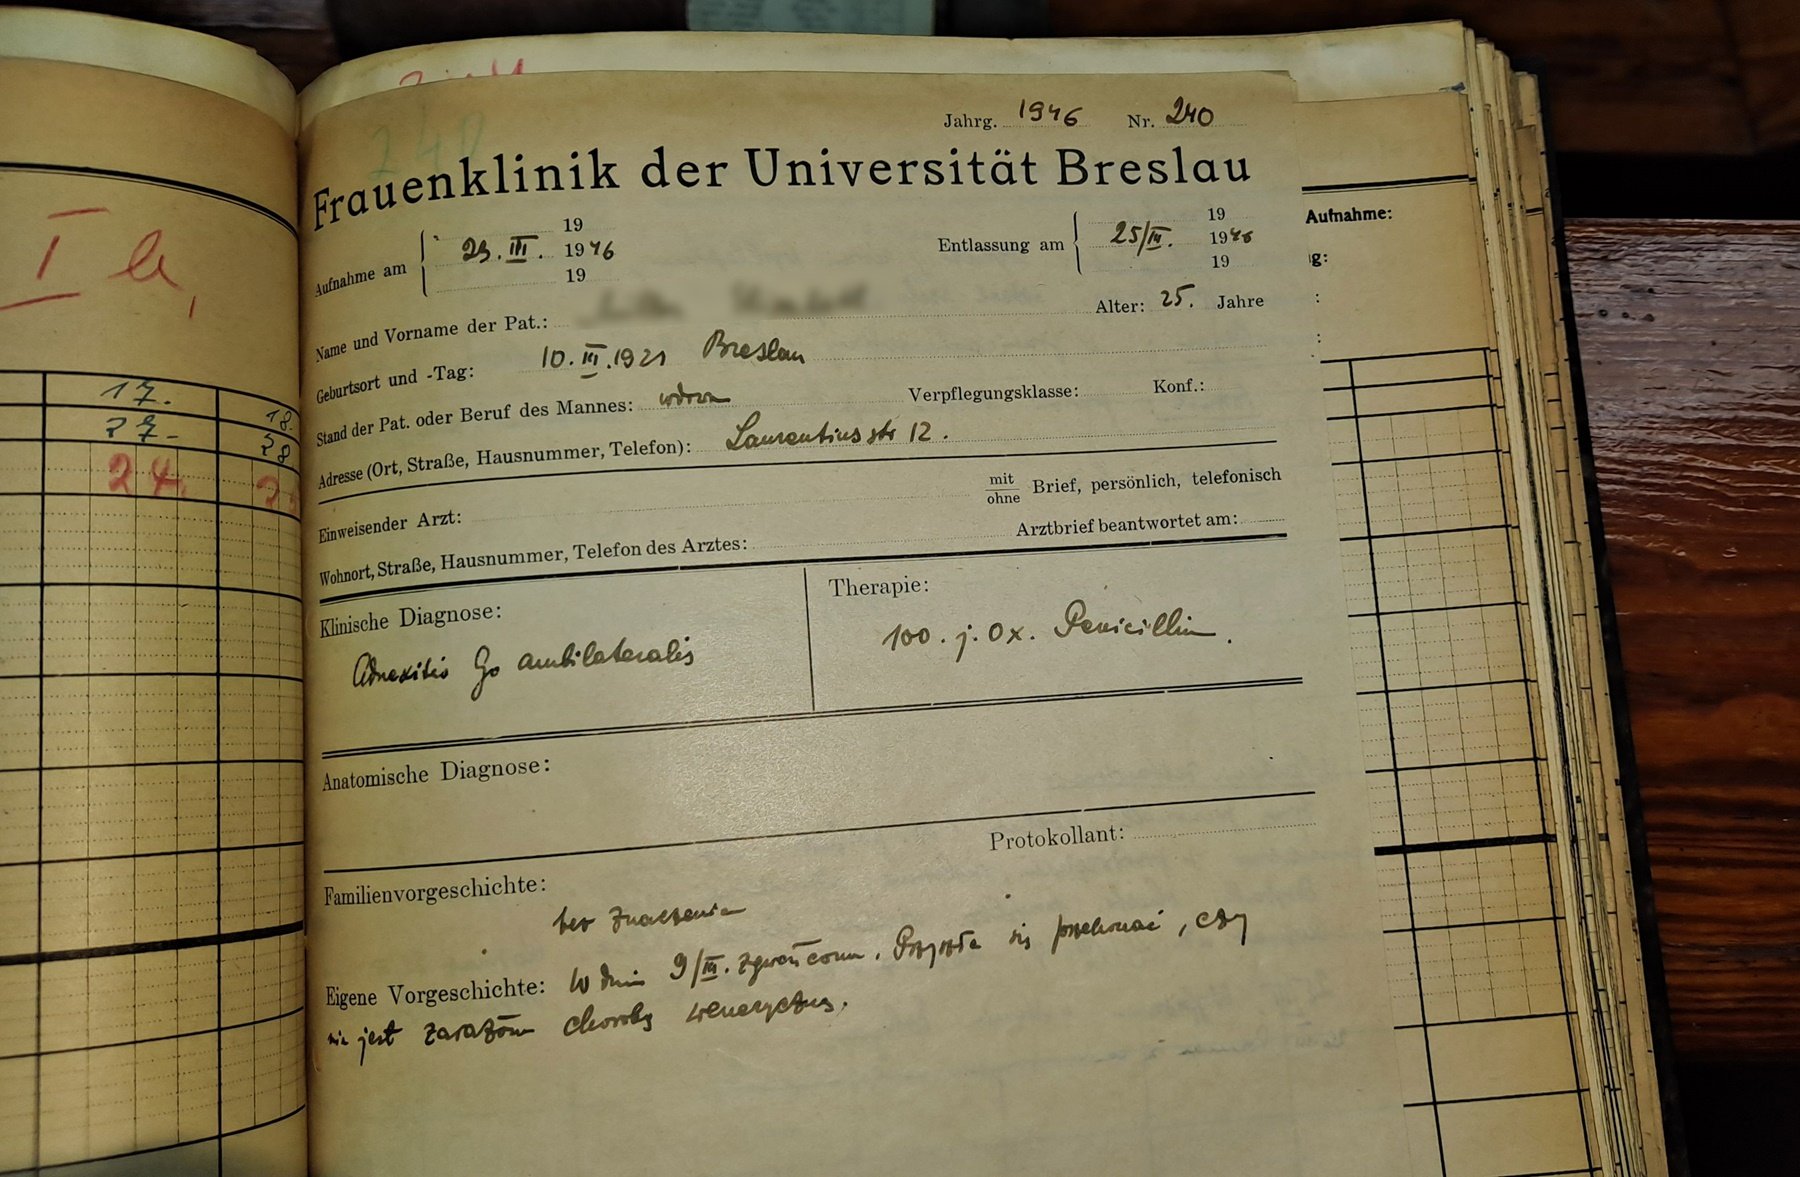 Jahrg. 1946 Nr. 240
240
Frauenklinik der Universität Breslau
19
Aufnahme am 23. III. 1946
19
19
Entlassung am 25/III. 1946
19
Name und Vorname der Pat.: Alter: 25. Jahre
Geburtsort und -Tag: 10. III. 1921 Breslau
Stand der Pat. oder Beruf des Mannes: wdowa Verpflegungsklasse: Konf.:
Adresse (Ort, Straße, Hausnummer, Telefon): Laurentiusstr 12.
Einweisender Arzt: mit ohne Brief, persönlich, telefonisch
Wohnort, Straße, Hausnummer, Telefon des Arztes: Arztbrief beantwortet am:
Klinische Diagnose: Therapie:
Adnexitis Go ambilateralis 100. j. Ox. Penicillin.
Anatomische Diagnose:
Protokollant:
Familienvorgeschichte:
bez znaczenia
Eigene Vorgeschichte: W dniu 9/III. zgwałcona. Przyszła się przekonać, czy
nie jest zarażona chorobą weneryczną.
I
17. 18.
27. 28
24.
Aufnahme:
g:
:
: